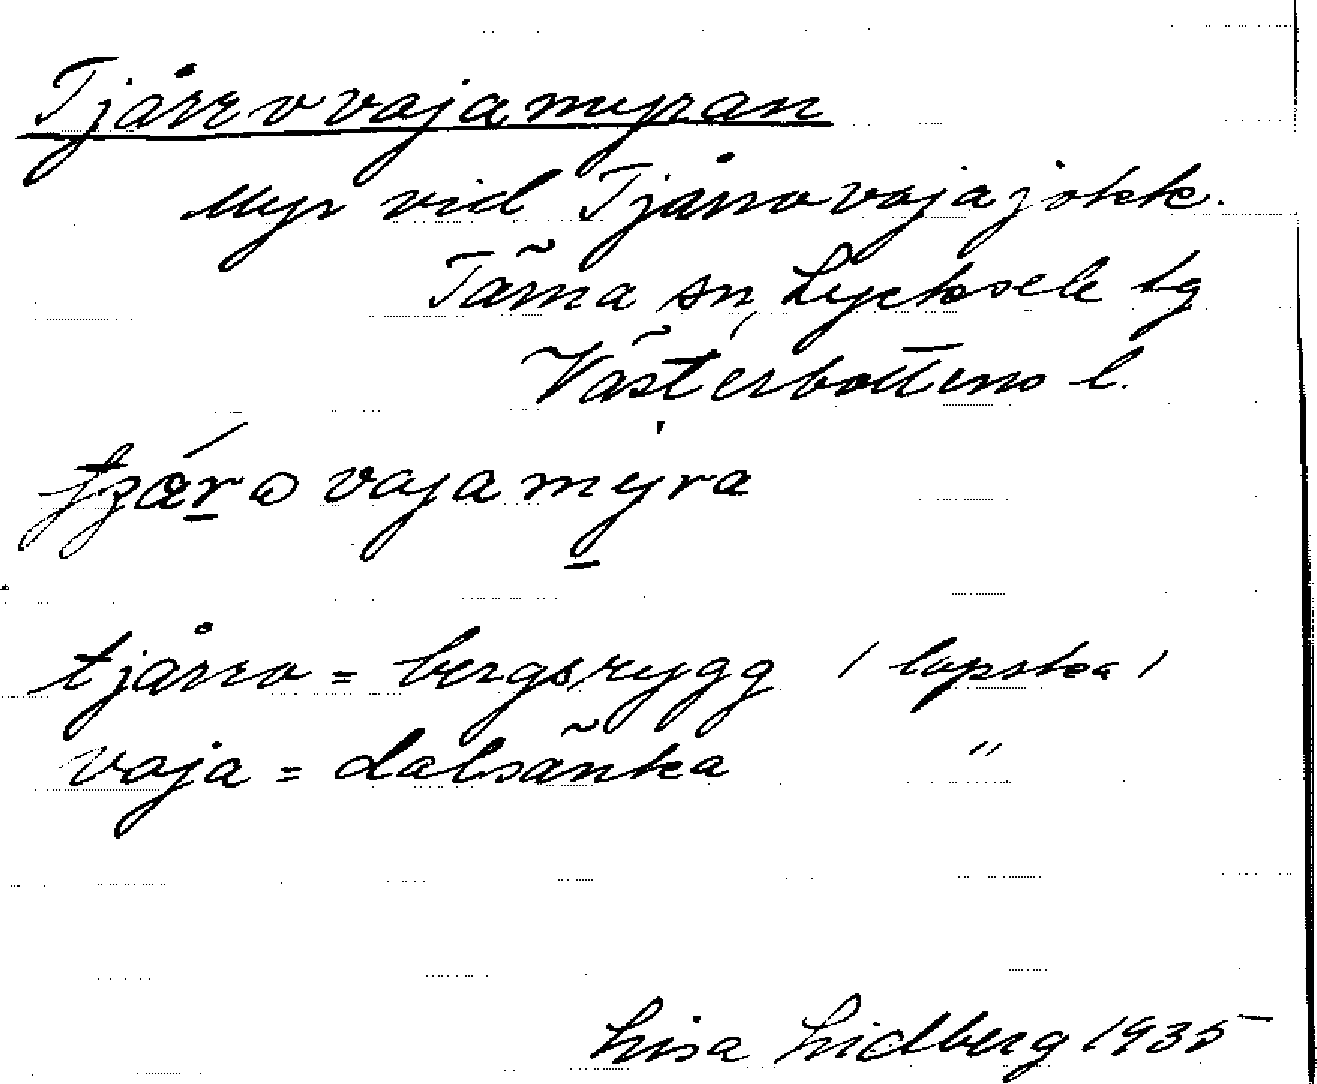 Tjårrovajamyran
Myr vid Tjårrovajajokk.
Tärna sn, Lycksele lg
Västerbottens l.
tjårro = bergsrygg / lapska /
vaja = dalsänka "
Lisa Lidberg 1935